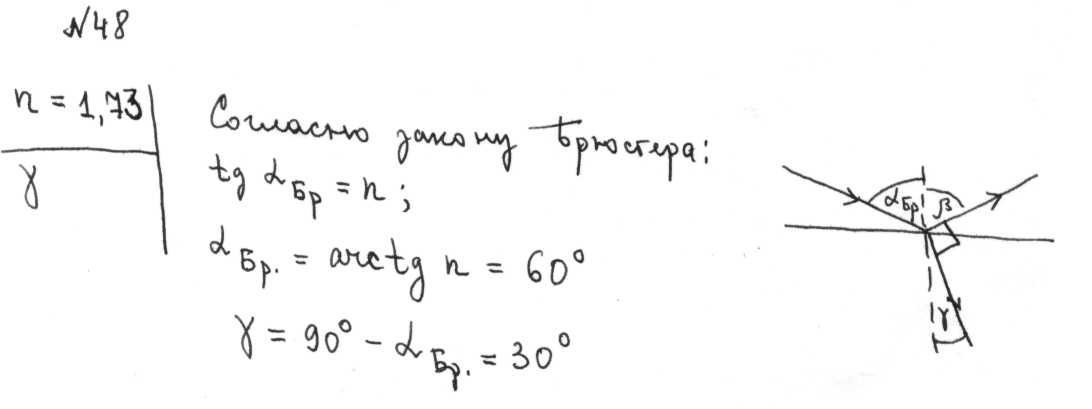 №48
n = 1,73
γ
Согласно закону Брюстера:
tg α Бр = n ;
α Бр. = arctg n = 60°
γ = 90° - α Бр. = 30°
α Бр β
γ